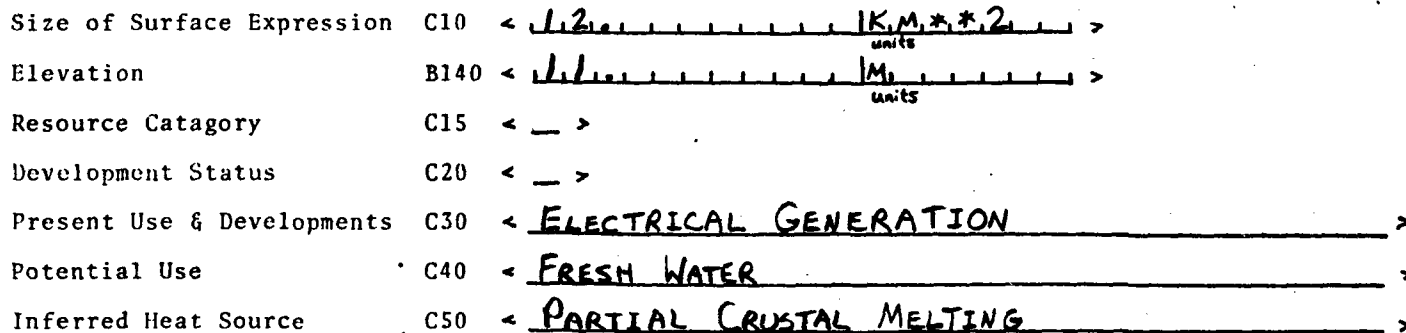 Size of Surface Expression C10 < 12. KM**2 >
units
Elevation B140 < 11. M >
units
Resource Catagory C15 < _ >
Development Status C20 < _ >
Present Use & Developments C30 < ELECTRICAL GENERATION >
Potential Use C40 < FRESH WATER >
Inferred Heat Source C50 < PARTIAL CRUSTAL MELTING >